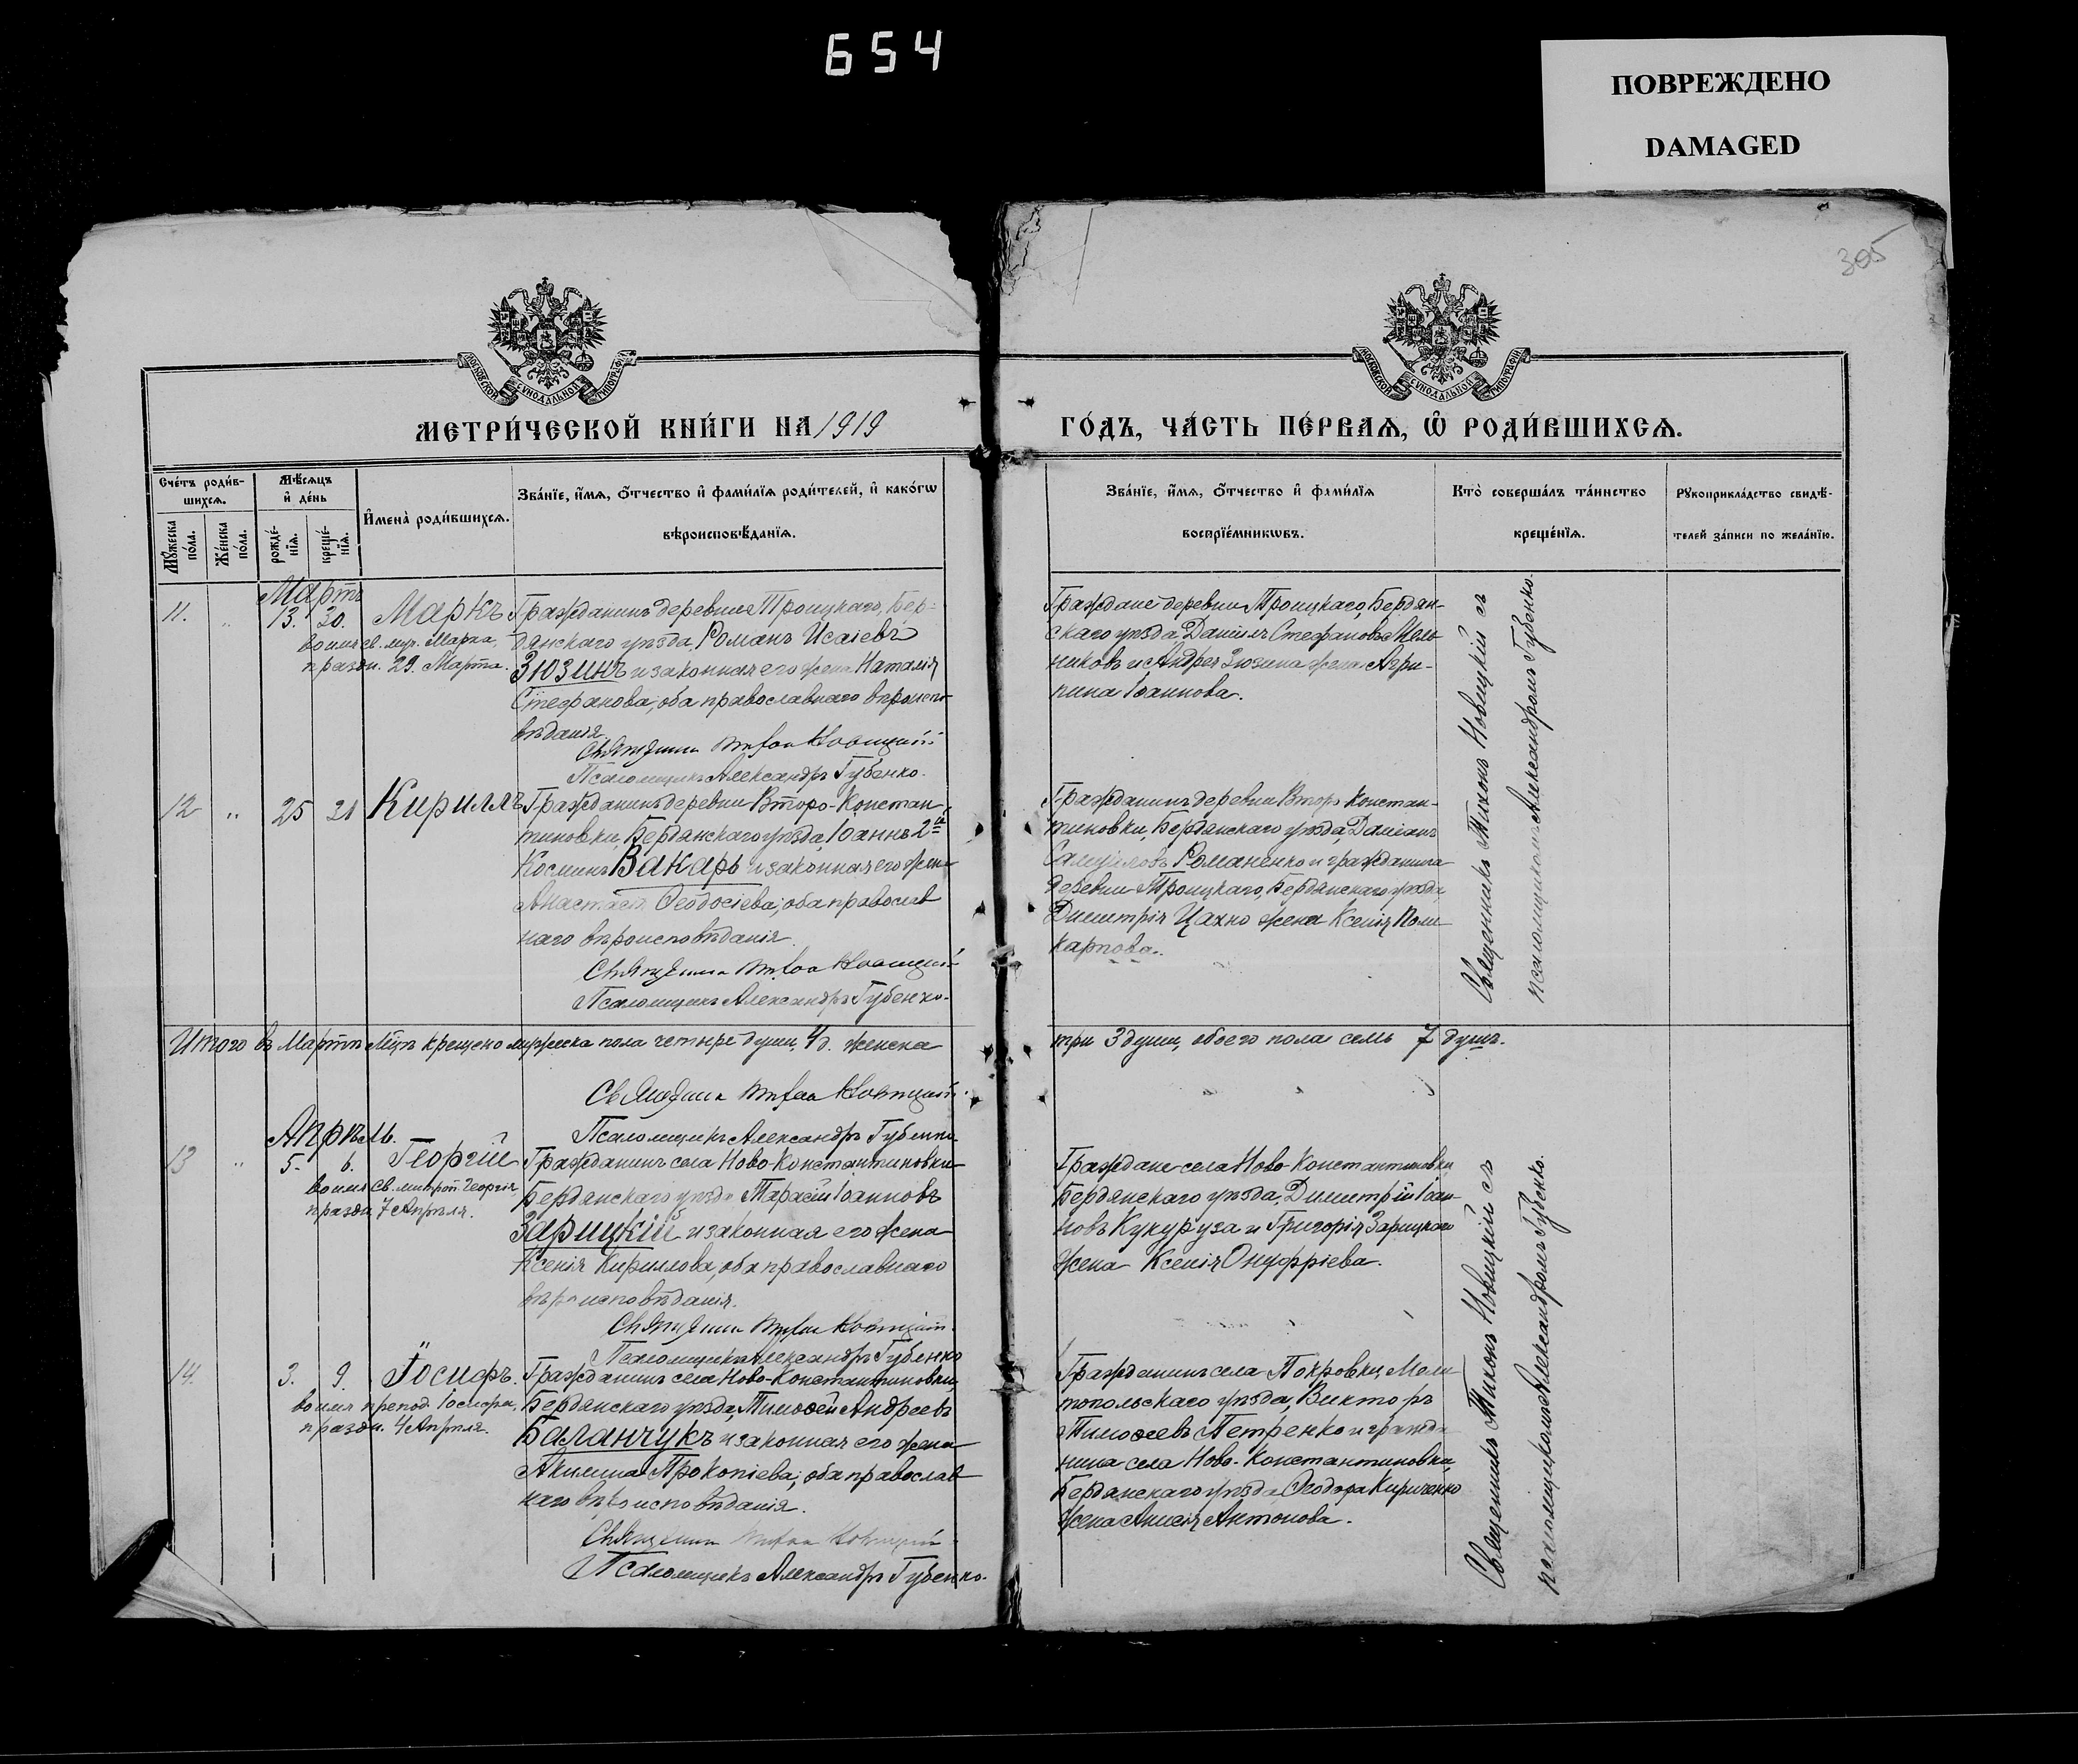 654
ПОВРЕЖДЕНО
DAMAGED
305
МОСКОВСКОЙ СѴНОДАЛЬНОЙ ТИПОГРАФІИ
МОСКОВСКОЙ СѴНОДАЛЬНОЙ ТИПОГРАФІИ
МЕТРИ́ЧЕСКОЙ КНИ́ГИ НА 1919
ГО́ДЪ, ЧА́СТЬ ПЕ́РВАѦ, Ѡ РОДИ́ВШИХСѦ.
Сче́тъ роди́в-
шихсѧ.
Мꙋ́жеска по́ла.
Же́нска по́ла.
Мѣ́сѧцъ
и҆ де́нь
рожде́-
нїѧ.
креще́-
нїѧ.
И҆мена̀ роди́вшихсѧ.
Зва́нїе, и҆́мѧ, о҆́тчество и҆ фами́лїѧ роди́телей, и҆ како́гѡ
вѣроисповѣ́данїѧ.
Зва́нїе, и҆́мѧ, о҆́тчество и҆ фами́лїѧ
воспрїе́мникѡвъ.
Кто̀ соверша́лъ та́инство
креще́нїѧ.
Рꙋкоприкла́дство свидѣ́-
телей за́писи по жела́нїю.
Мартъ
11. " 13. 30. Маркъ
во имя св. муч. Марка,
праздн. 29. Марта.
Гражданинъ деревни Троицкаго, Бер-
дянскаго уѣзда, Романъ Исаіевъ
Зюзинъ и законная его жена Наталія
Стефанова, оба православнаго вѣроиспо-
вѣданія.
Священникъ Тихонъ Новицкій
Псаломщикъ Александръ Губенко.
Граждане деревни Троицкаго, Бердян-
скаго уѣзда, Даніилъ Стефановъ Мель-
никовъ и Андрея Зюзина жена Агри-
пина Іоаннова.
Священникъ Тихонъ Новицкій съ
псаломщикомъ Александромъ Губенко.
12 " 25 31 Кириллъ
Гражданинъ деревни Второ-Констан-
тиновки, Бердянскаго уѣзда, Іоаннъ 2й
Косминъ Вакарь и законная его жена
Анастасія Ѳеодосіева, оба православ
наго вѣроисповѣданія.
Священникъ Тихонъ Новицкій
Псаломщикъ Александръ Губенко.
Гражданинъ деревни Второ Констан-
тиновки, Бердянскаго уѣзда,
Романенко и гражданина
деревни Троицкаго, Бердянскаго уѣзда
Димитрія Цахно жена Ксенія Поли-
карпова.
Итого въ Мартѣ м‑цѣ крещено мужеска пола четыре души, 4 д. женска
три 3 души, обоего пола семь 7 душъ.
Священникъ Тихонъ Новицкій.
Псаломщикъ Александръ Губенко
Апрѣль.
13 " 5. 6. Георгій
во имя св. митроп. Георгія,
праздн. 7 Апрѣля.
Гражданинъ села Ново-Константиновки
Бердянскаго уѣзда Тарасій Іоанновъ
Зарицкій и законная его жена
Ксенія Кириллова, оба православнаго
вѣроисповѣданія.
Священникъ Тихонъ Новицкій.
Псаломщикъ Александръ Губенко
Граждане села Ново-Константиновки
Бердянскаго уѣзда, Димитрій Іоан-
новъ Кукуруза и Григорія Зарицкаго
жена Ксенія Онуфріева.
Священникъ Тихонъ Новицкій съ
псаломщикомъ Александромъ Губенко.
14. 3. 9. Іосифъ.
во имя препод. Іосифа,
праздн. 4 Апрѣля.
Гражданинъ села Ново-Константиновки,
Бердянскаго уѣзда, Тимоѳей Андреевъ
Баланчукъ и законная его жена
Акилина Прокопіева; оба православ
наго вѣроисповѣданія.
Священникъ Тихонъ Новицкій
Псаломщикъ Александръ Губенко.
Гражданинъ села Покровки, Мели
топольскаго уѣзда, Викторъ
Тимоѳеевъ Петренко и гражда
нина села Ново-Константиновки,
Бердянскаго уѣзда Ѳеодора Кириченко
жена Анисія Антонова.